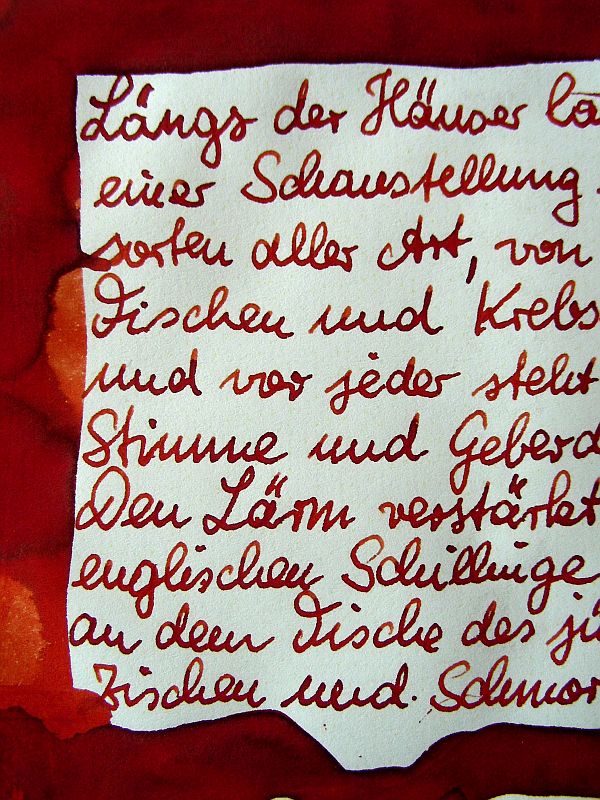 Längs der Häuser la
einer Schaustellung
sorten aller Art, von
Fischen und Krebs
und vor jeder steht
Stimme und Geberd
Den Lärm verstärkt
englischen Schillinge
an dem Tische des jü
Zischen und Schmor